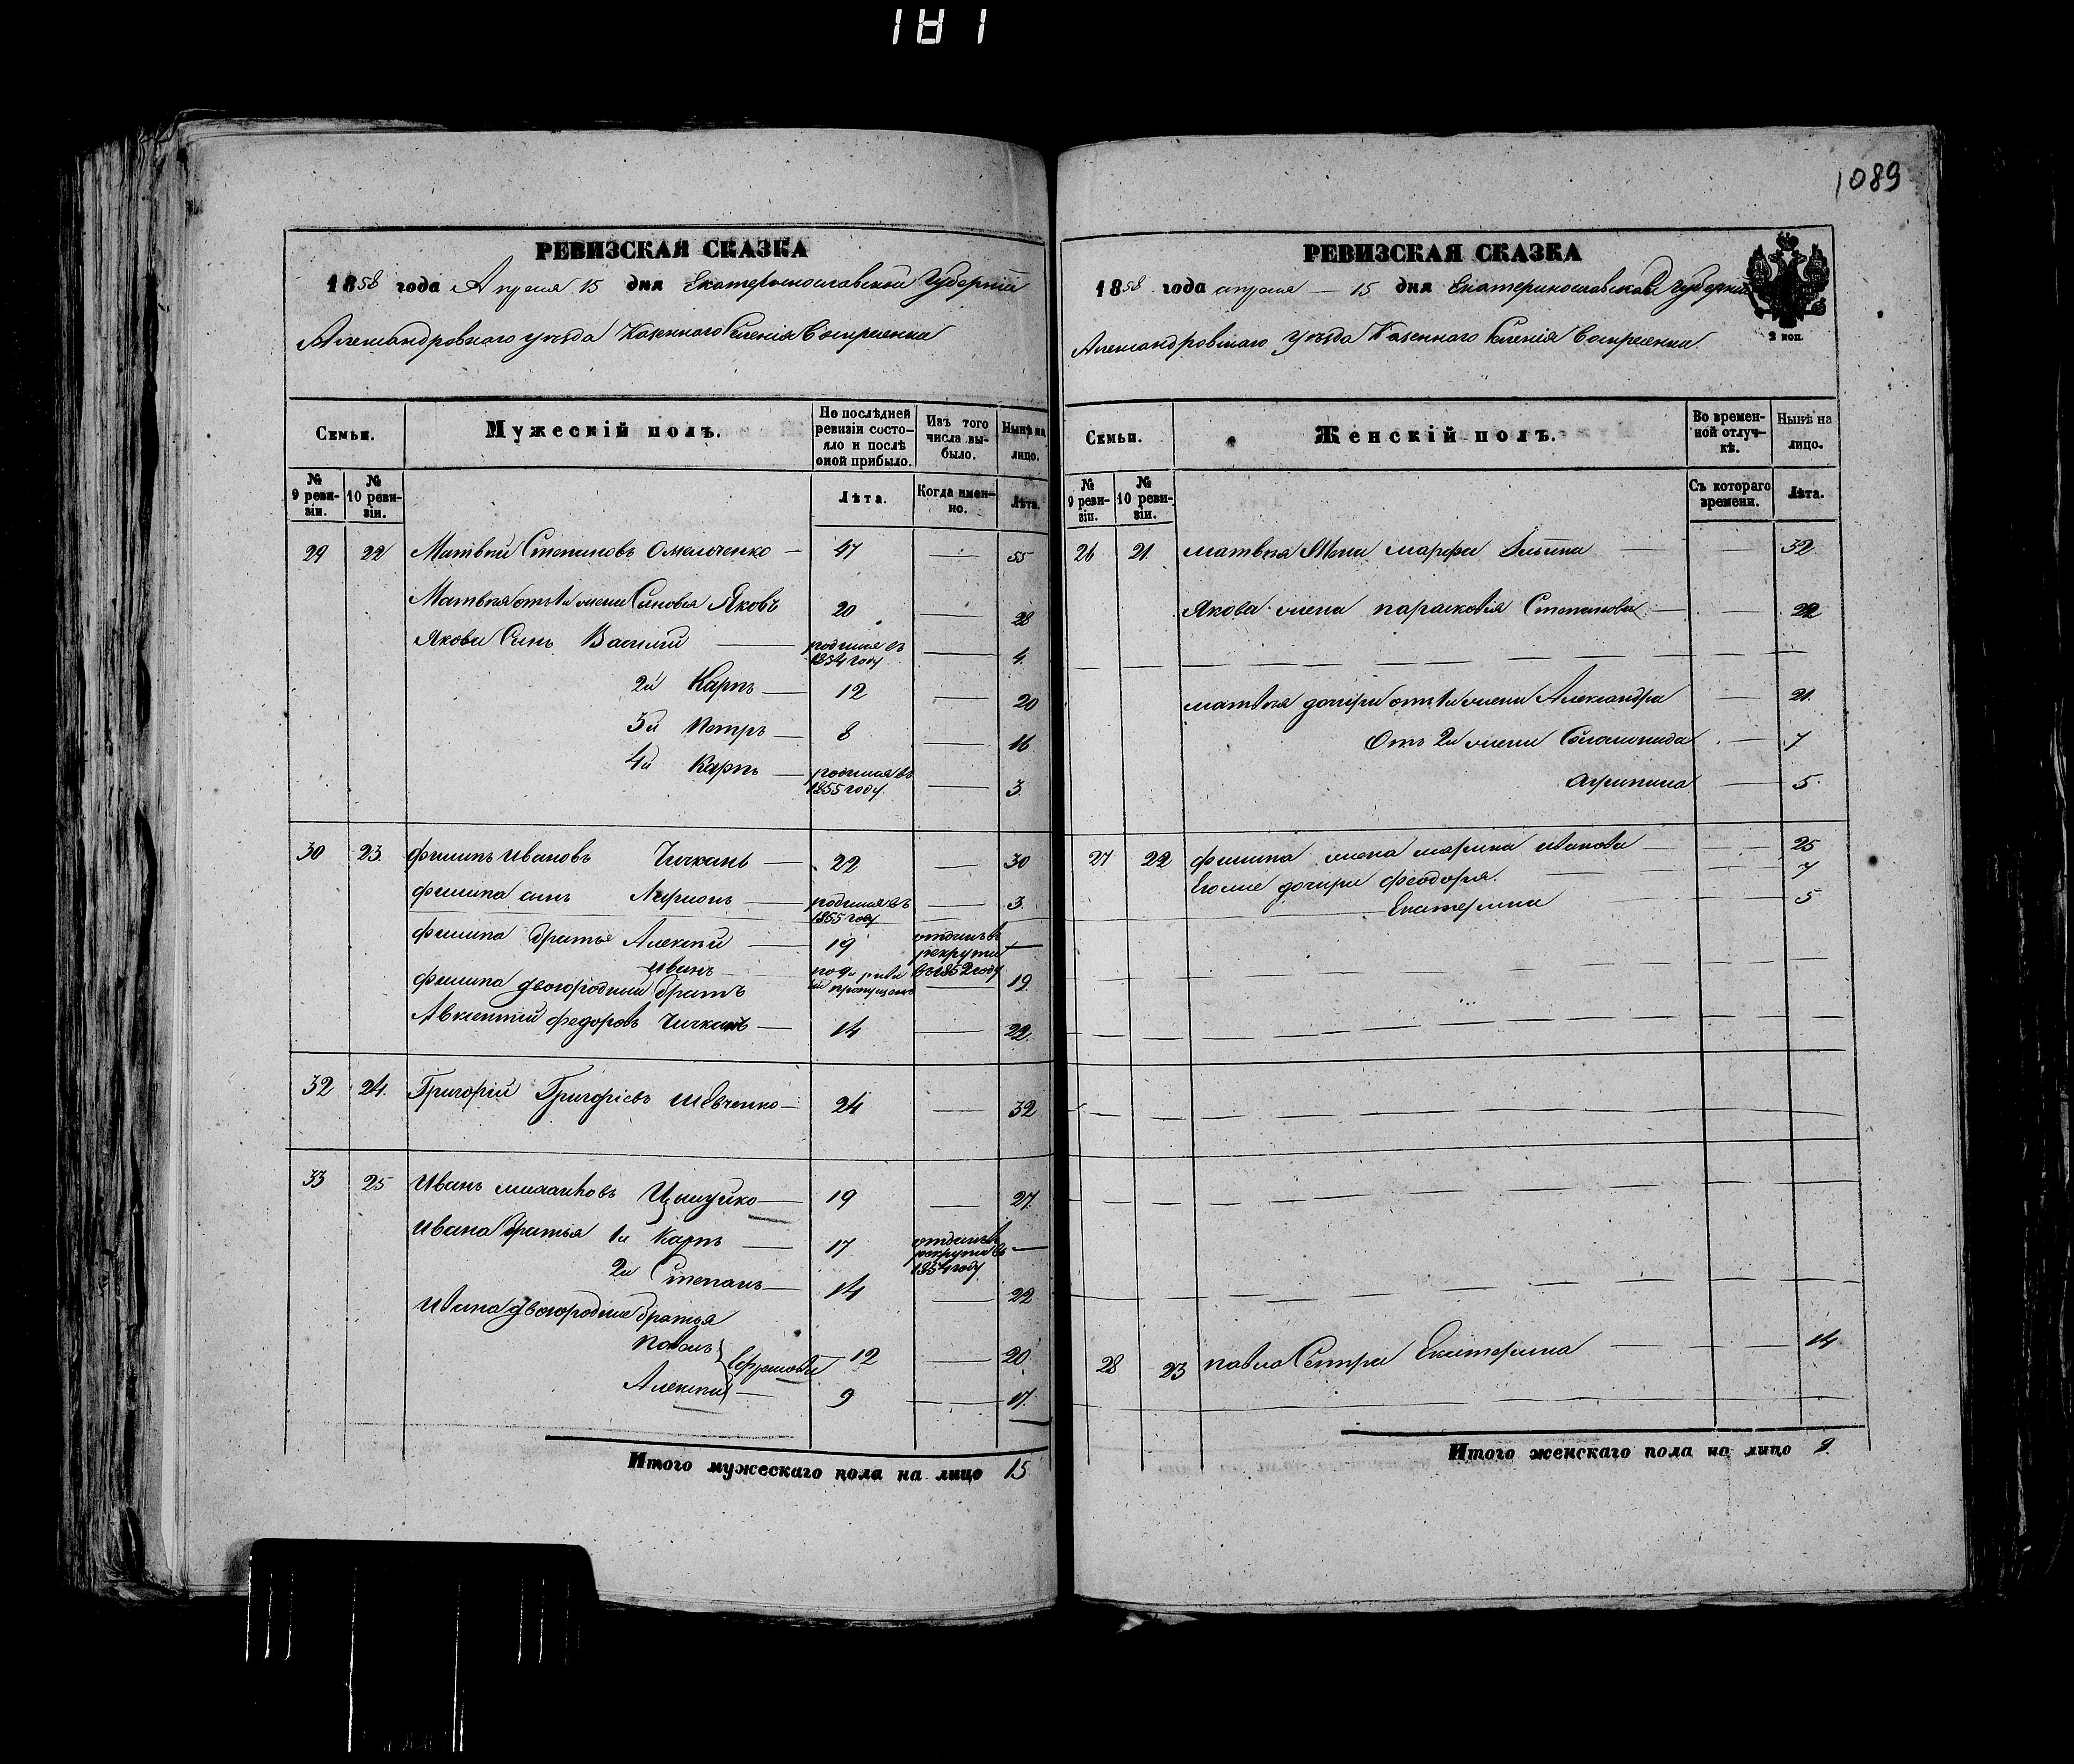 181
1089
РЕВИЗСКАЯ СКАЗКА
1858 года Апреля 15 дня Екатеринославской Губерніи
Александровскаго уѣзда Казеннаго Селенія Воскресенки
Семьи.
Мужескій полъ.
По послѣдней ревизіи состояло и послѣ оной прибыло.
Изъ того числа выбыло.
Нынѣ на лицо.
№ 9 ревизіи.
№ 10 ревизіи.
Лѣта.
Когда именно.
Лѣта.
29 22 Матвѣй Степановъ Омельченко 47 55
Матвѣя отъ 1й жены Сыновья Яковъ 20 28
Якова Сынъ Василий родился въ 1854 году 4.
2й Карпъ 12 20
3й Петръ 8 16
4й Карпъ родился въ 1855 году 3.
30 23. Филипъ Ивановъ Чичканъ 22 30
Филипа сынъ родился въ 1855 году 3.
Филипа братье Алексѣй 19 отданъ въ рекруты въ 1852 году
Иванъ по 9й ревизіи пропущенъ 19
Филипа двоюродный братъ
Авксентий Федоровъ Чичканъ 14 22.
32 24. Григорій Григоріевъ Шевченко 24 32
33 25 Иванъ Михайловъ 19 27.
Ивана братья 1й Карпъ 17 отданъ въ рекруты въ 1854 году
2й Степанъ 14 22
Ивана двоюродные братья
Павелъ 12 20
Алексѣй 9 17.
Итого мужескаго пола на лицо 15
РЕВИЗСКАЯ СКАЗКА
1858 года апреля 15 дня Екатеринославской Губерніи
Александровскаго уѣзда Казеннаго Селенія Воскресенки.
2 коп.
Семьи.
Женскій полъ.
Во временной отлучкѣ.
Нынѣ на лицо.
№ 9 ревизіи.
№ 10 ревизіи.
Съ котораго времени.
Лѣта.
26 21 Матвѣя Жена Марфа 32
Якова жена Парасковія Степанова 22
Матвѣя дочери отъ 1й жены Александра 21.
Отъ 2й жены Соломонида 7
Агрипина 5.
27 22 Филипа жена Марина Иванова 25
Егоже дочери Феодора. 7
Екатерина 5
28 23 Павла Сестра Екатерина 14
Итого женскаго пола на лицо 9.